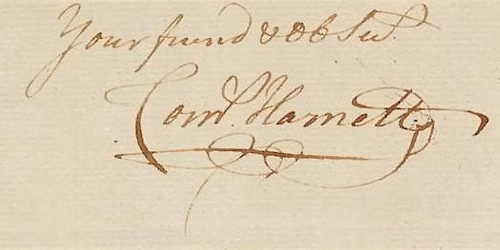 Your friend & Ob Ser.
Corn.s Harnett